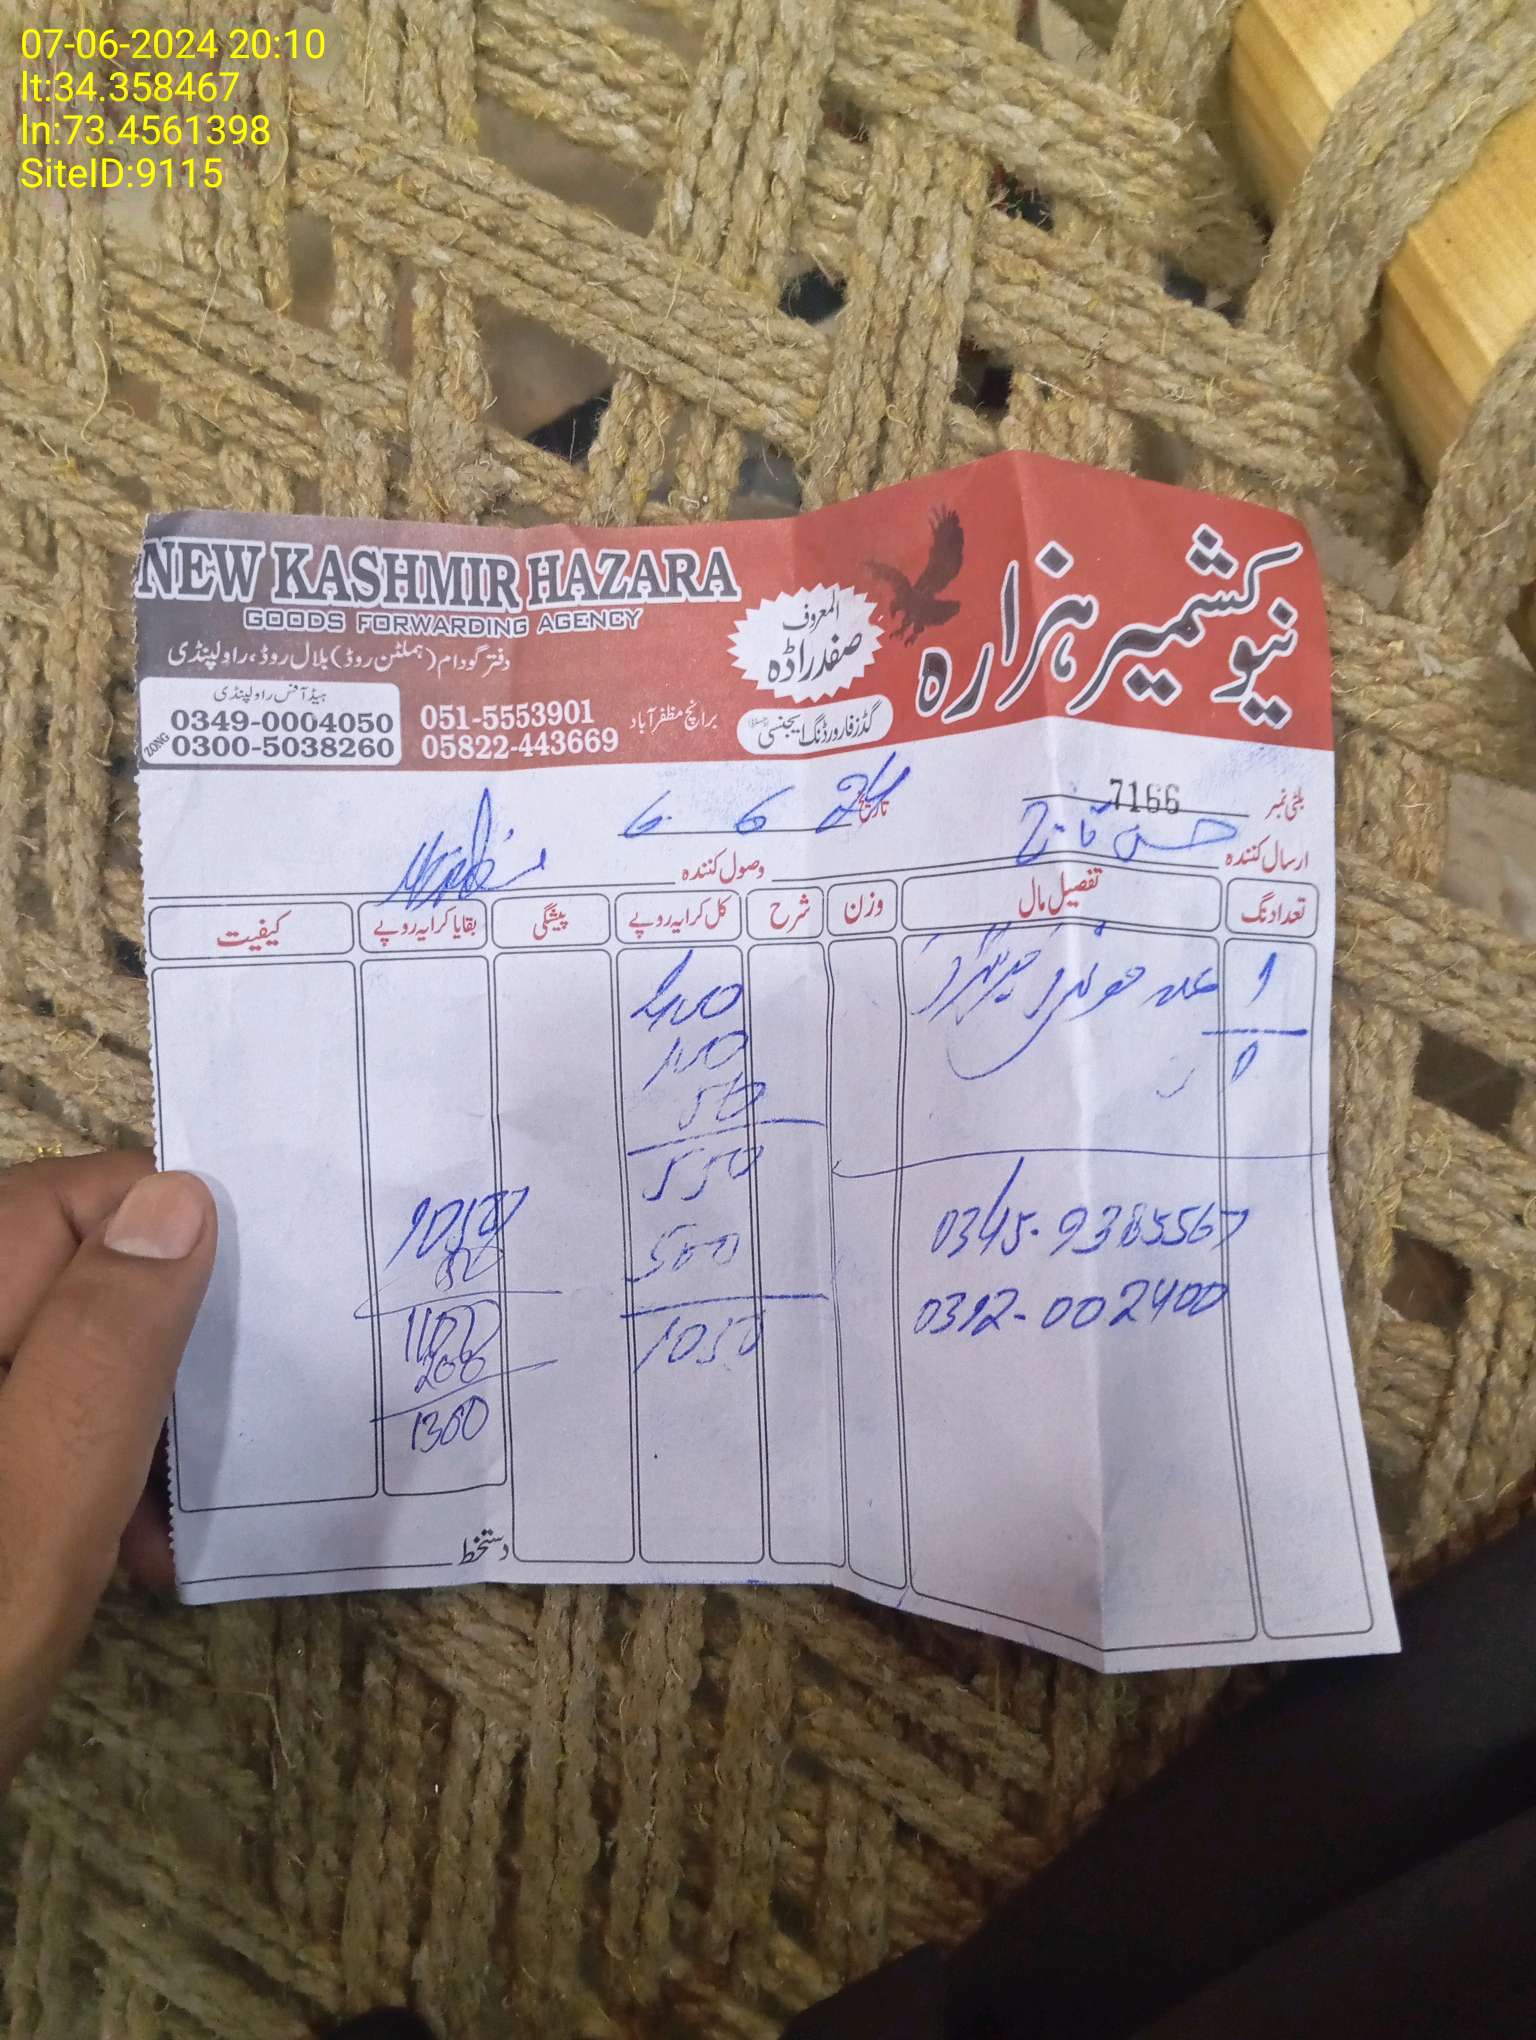 07-06-2024 20:10
lt:34.358467
ln:73.4561398
SiteID:9115
NEW KASHMIR HAZARA
GOODS FORWARDING AGENCY
نیو کشمیر ہزارہ
المعروف
صفدر اڈہ
گڈز فارورڈنگ ایجنسی
دفتر گودام (ہملٹن روڈ) بلال روڈ، راولپنڈی
ہیڈ آفس راولپنڈی
0349-0004050
ZONG 0300-5038260
051-5553901
05822-443669
برانچ مظفر آباد
بلٹی نمبر 7166
تاریخ 6 6 24
ارسال کنندہ
وصول کنندہ
تعداد نگ تفصیل مال وزن شرح کل کرایہ روپے پیشگی بقایا کرایہ روپے کیفیت
1
400
100
50
550
500
1050
1050
50
1100
200
1300
0345-9385567
0312-002400
دستخط